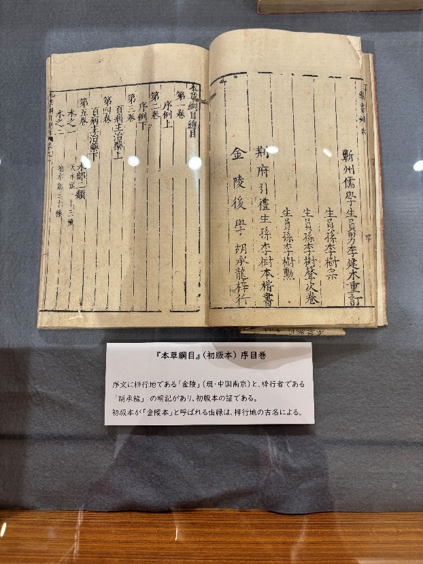 蘄州儒學生員男李建木重訂
生員孫李樹宗
生員孫李樹聲次卷
生員孫李樹勲
荆府引禮生孫李樹本楷書
金陵後學胡承龍梓行
本草綱目總目
第一卷
序例上
第二卷
序例下
第三卷
百病主治藥上
第四卷
百病主治藥下
第五卷
水部二類
水之一
水之二
『本草綱目』(初版本) 序目巻
序文に梓行地である「金陵」(現・中国南京)と、梓行者である
「胡承龍」の明記があり、初版本の証である。
初版本が「金陵本」と呼ばれる由縁は、梓行地の古名による。